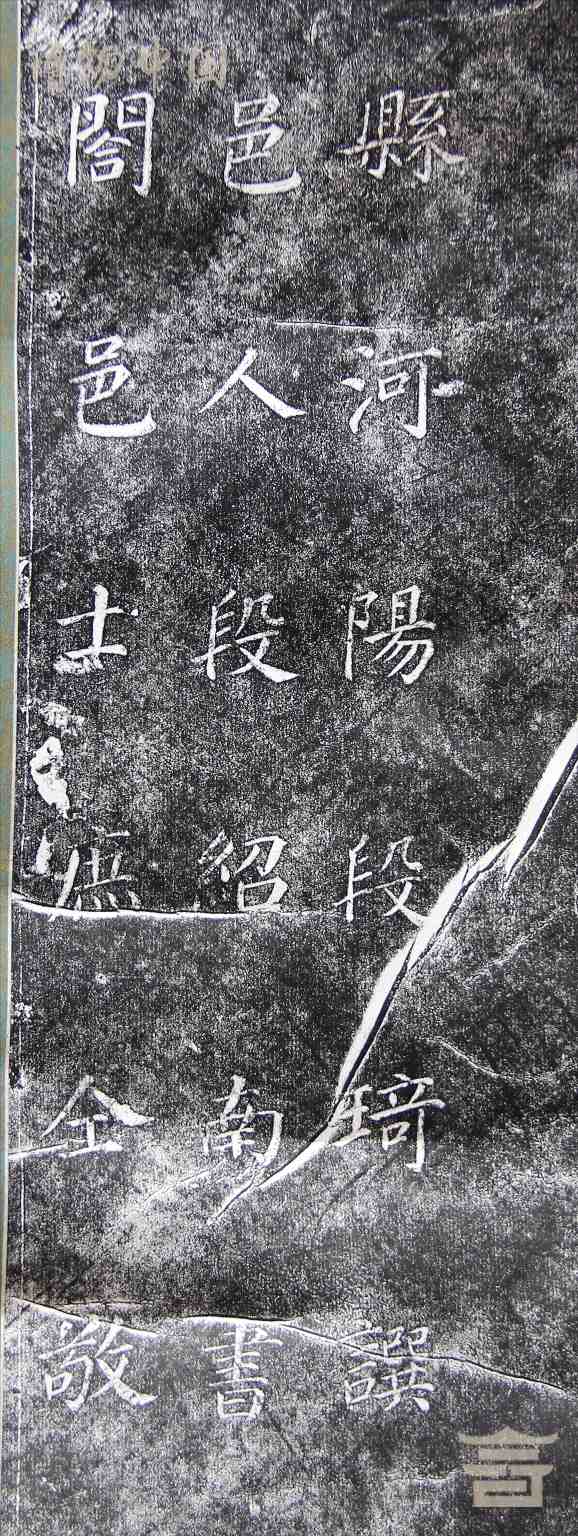 縣河陽段琦譔
邑人段紹南書
閤邑士庶仝敬